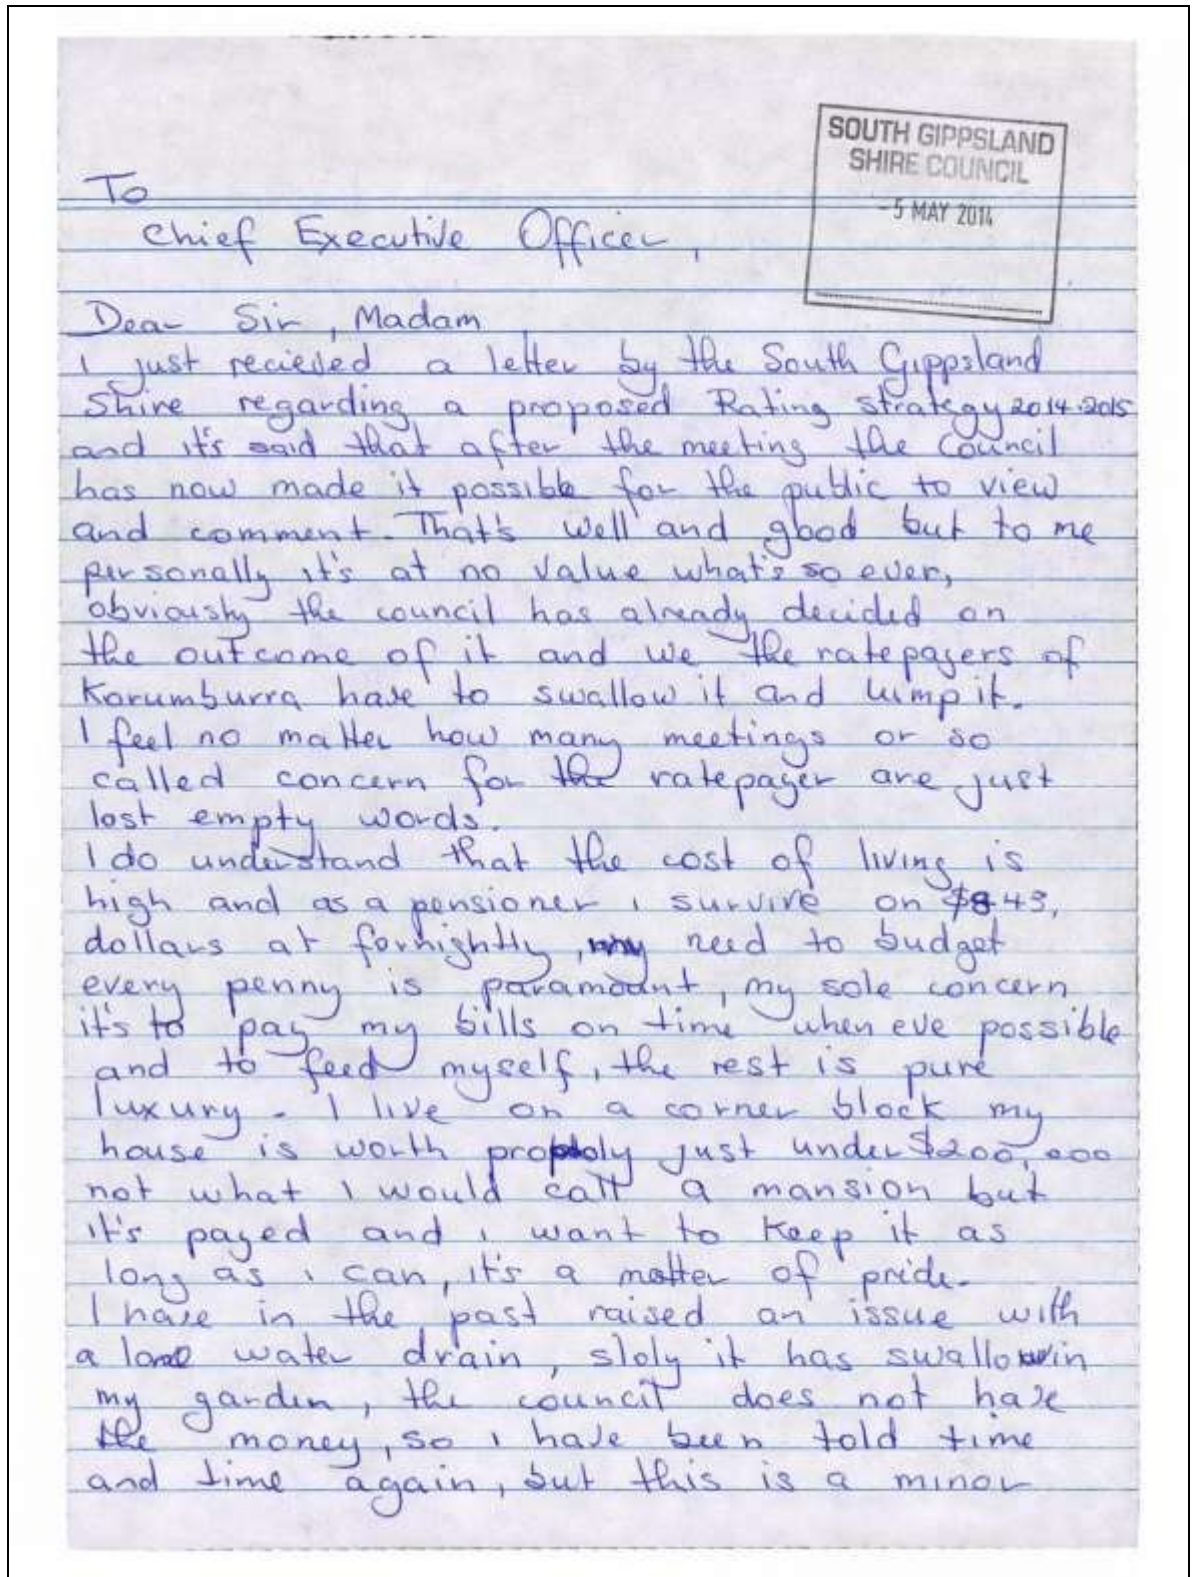 SOUTH GIPPSLAND
SHIRE COUNCIL
- 5 MAY 2014
To
Chief Executive Officer,
Dear Sir, Madam,
I just recieved a letter by the South Gippsland
Shire regarding a proposed Rating strategy 2014.2015
and it's said that after the meeting the Council
has now made it possible for the public to view
and comment. That's well and good but to me
personally it's at no value what's so ever,
obviously the council has already decided on
the outcome of it and we the ratepayers of
Korumburra have to swallow it and lump it.
I feel no matter how many meetings or so
called concern for the ratepayer are just
lost empty words.
I do understand that the cost of living is
high and as a pensioner i survive on $843,
dollars at fornightly, my need to budget
every penny is paramount, my sole concern
it's to pay my bills on time when eve possible
and to feed myself, the rest is pure
luxury. I live on a corner block my
house is worth just under $200,000
not what I would call a mansion but
it's payed and i want to keep it as
long as i can, it's a matter of pride.
I have in the past raised an issue with
a water drain, sloly it has swallowin
my garden, the council does not have
the money, so i have been told time
and time again, but this is a minor